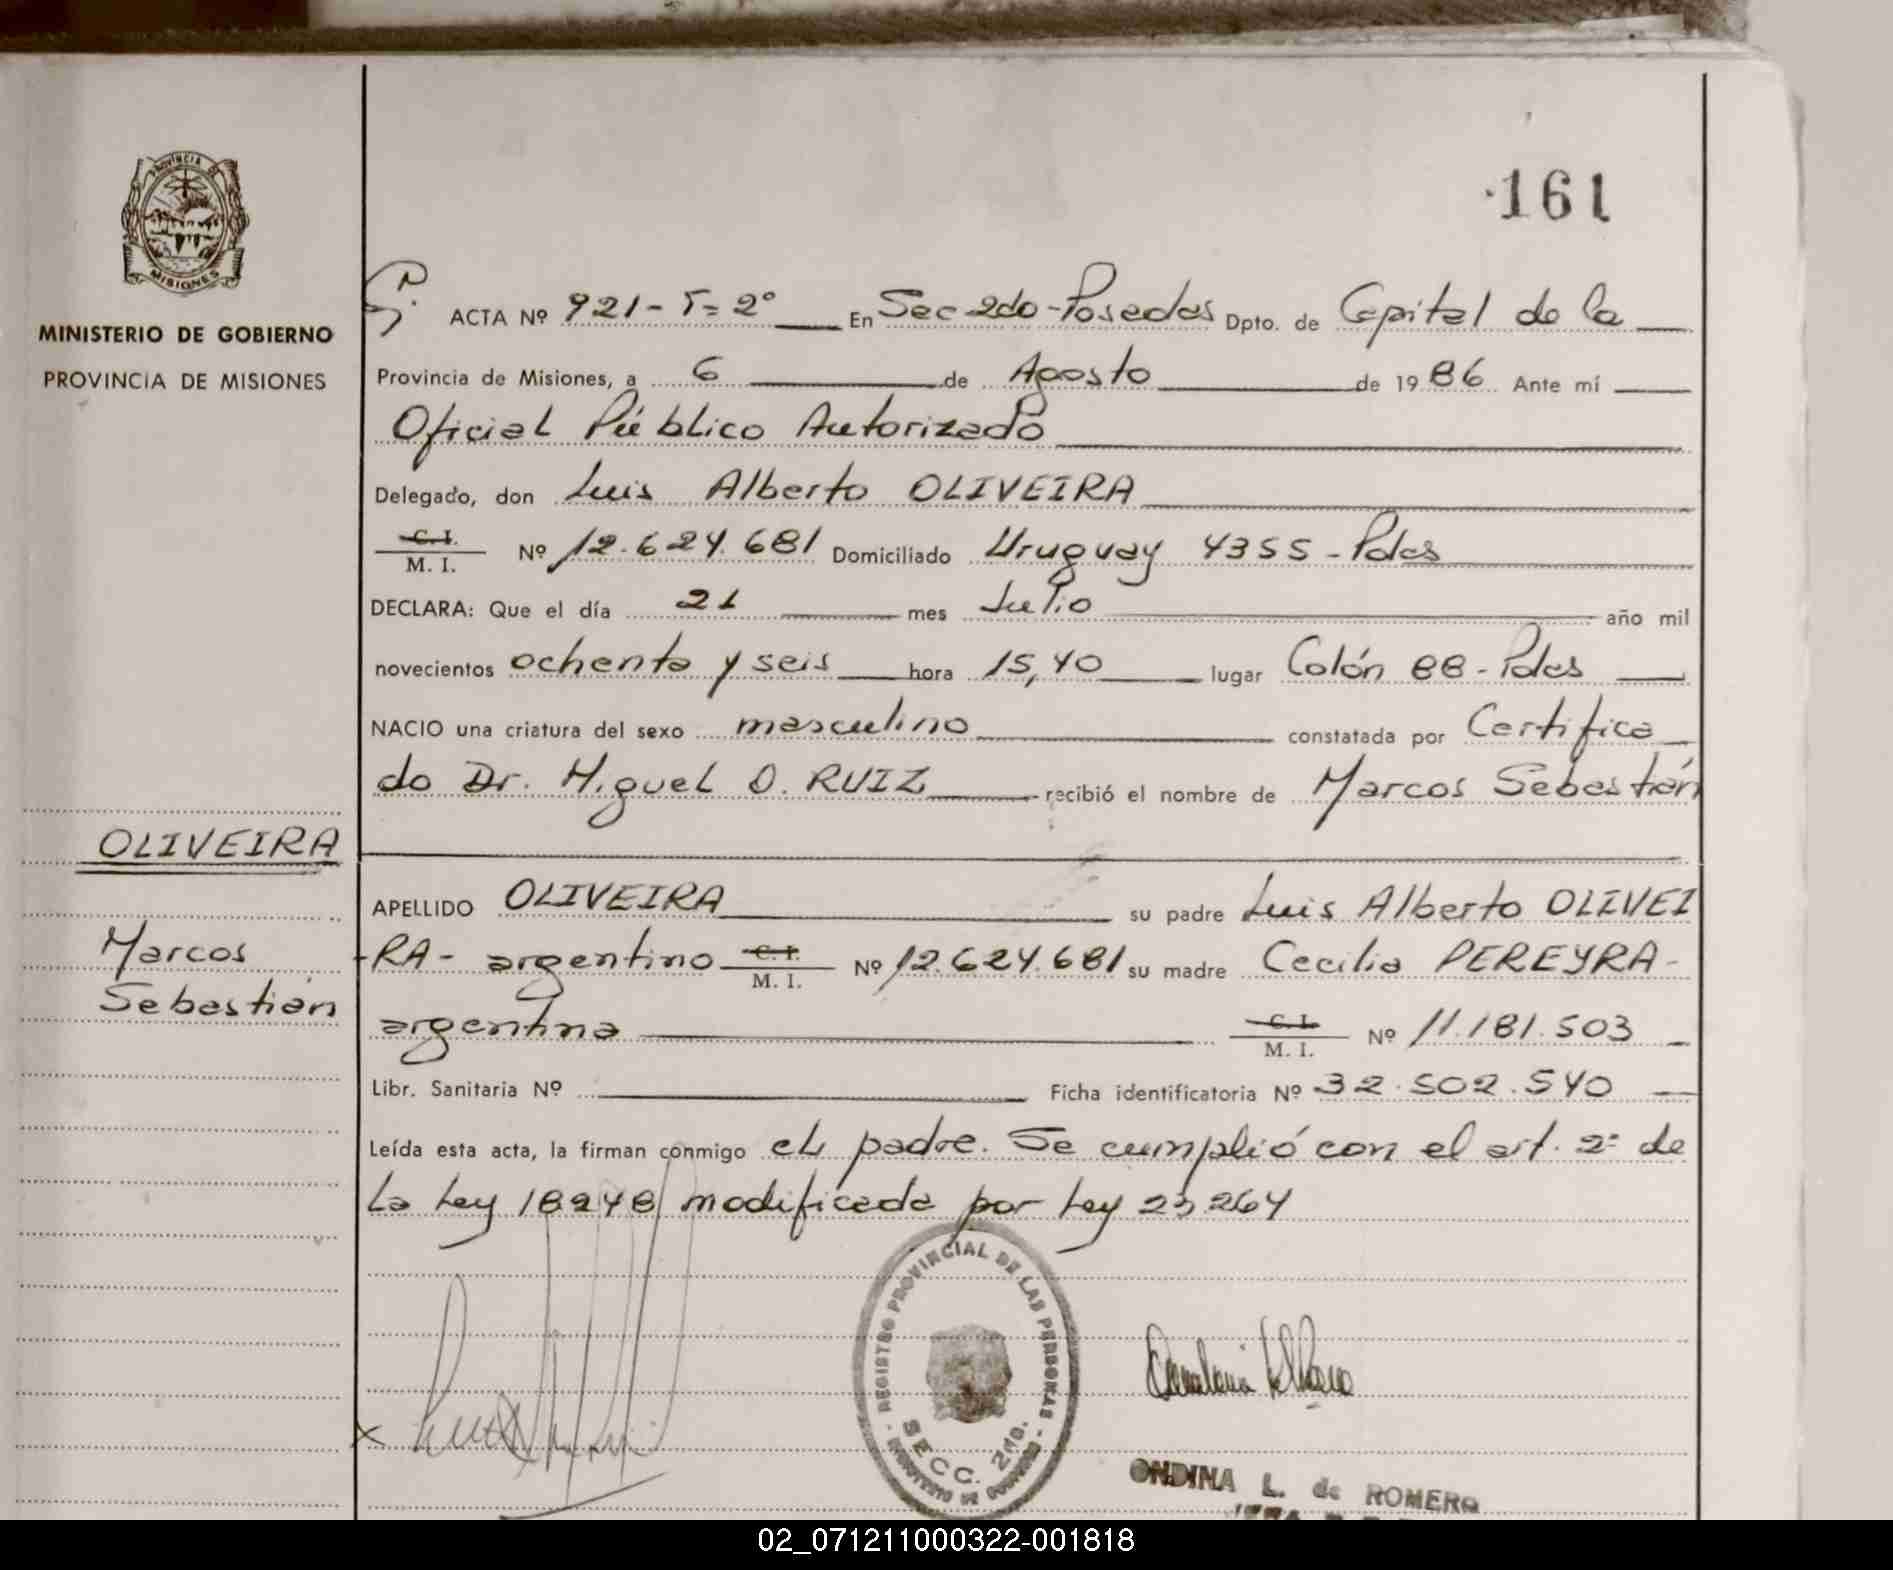 161
PROVINCIA DE
MISIONES
MINISTERIO DE GOBIERNO
PROVINCIA DE MISIONES
OLIVEIRA
Marcos
Sebastián
ACTA Nº 921 - T= 2º En Sec 2da - Posadas Dpto. de Capital de la
Provincia de Misiones, a 6 de Agosto de 1986 Ante mí
Oficial Público Autorizado
Delegado, don Luis Alberto OLIVEIRA
C. I.
M. I. Nº 12.624.681 Domiciliado Uruguay 4355 - Pdas
DECLARA: Que el día 21 mes Julio año mil
novecientos ochenta y seis hora 15,40 lugar Colón 88 - Pdas
NACIO una criatura del sexo masculino constatada por Certifica
do Dr. Miguel O. RUIZ recibió el nombre de Marcos Sebastián
APELLIDO OLIVEIRA su padre Luis Alberto OLIVEI
RA - argentino C. I. M. I. Nº 12.624.681 su madre Cecilia PEREYRA -
argentina C. I. M. I. Nº 11.181.503
Libr. Sanitaria Nº Ficha identificatoria Nº 32.502.540
Leída esta acta, la firman conmigo el padre. Se cumplió con el art. 2º de
la Ley 18248 modificada por Ley 23264
REGISTRO PROVINCIAL DE LAS PERSONAS
SECC. 2da.
MINISTERIO DE GOBIERNO
ONDINA L. de ROMERO
02_071211000322-001818